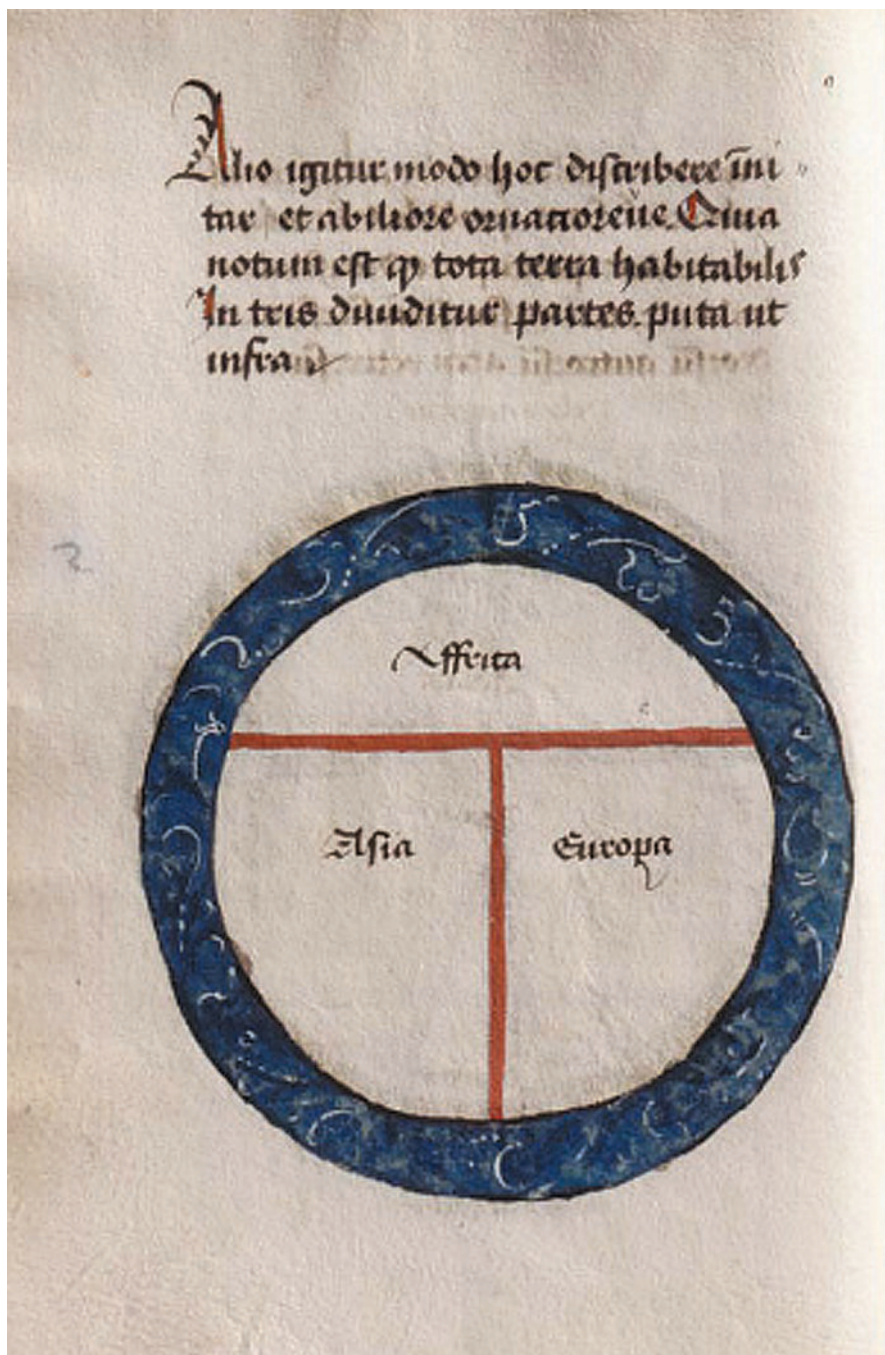 Alio igitur modo hoc discribere īni
tar et abiliore ornatioreue. Quia
notum est ꝙ tota terra habitabilis
In tris diuiditur partes. puta ut
infra
Affrica
Asia
Europa